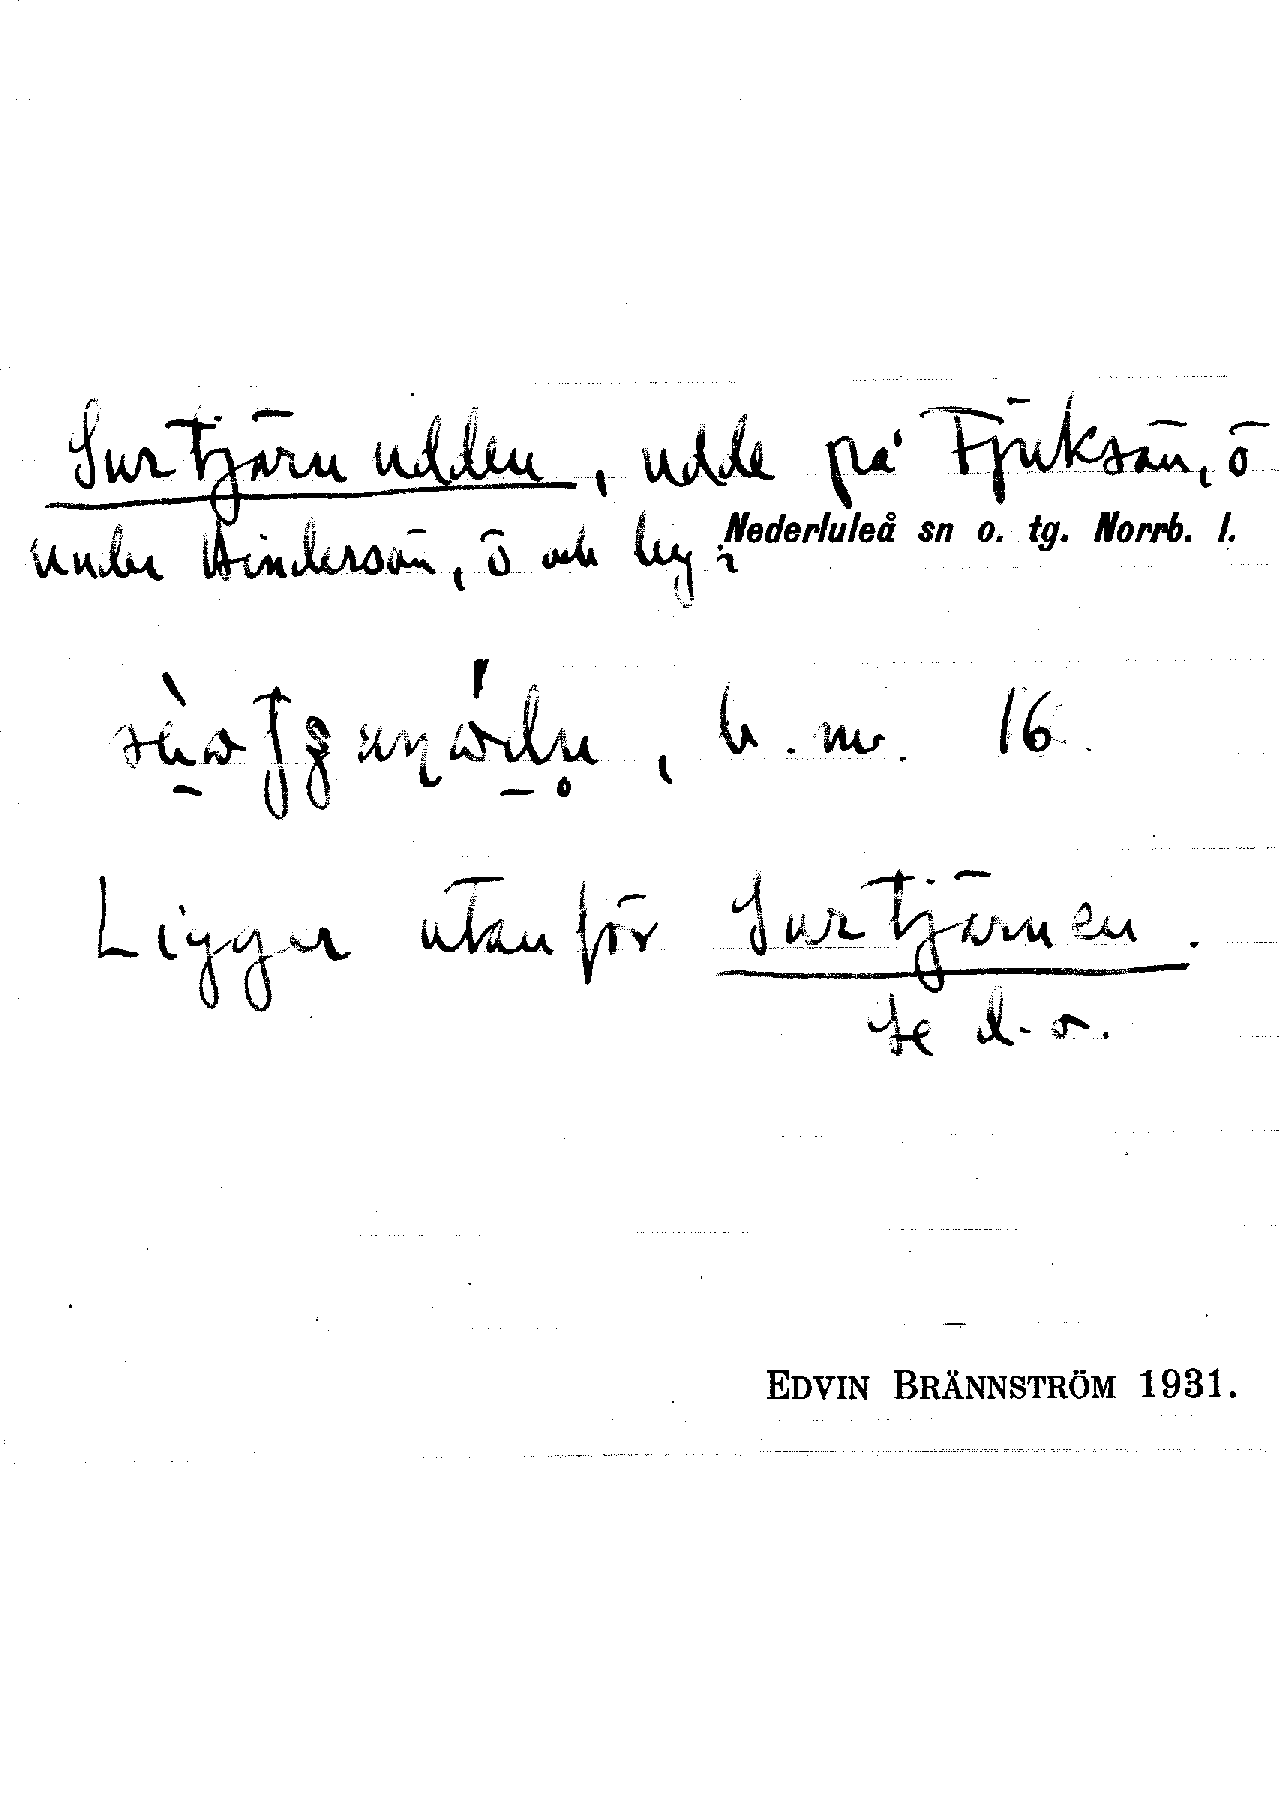 Surtjärnudden, udde på Fjuksön, ö
under Hindersön, ö och by i Nederluleå sn o. tg. Norrb. l.
, b. nv. 16.
Ligger utanför Surtjärnen.
Se d. o.
EDVIN BRÄNNSTRÖM 1931.